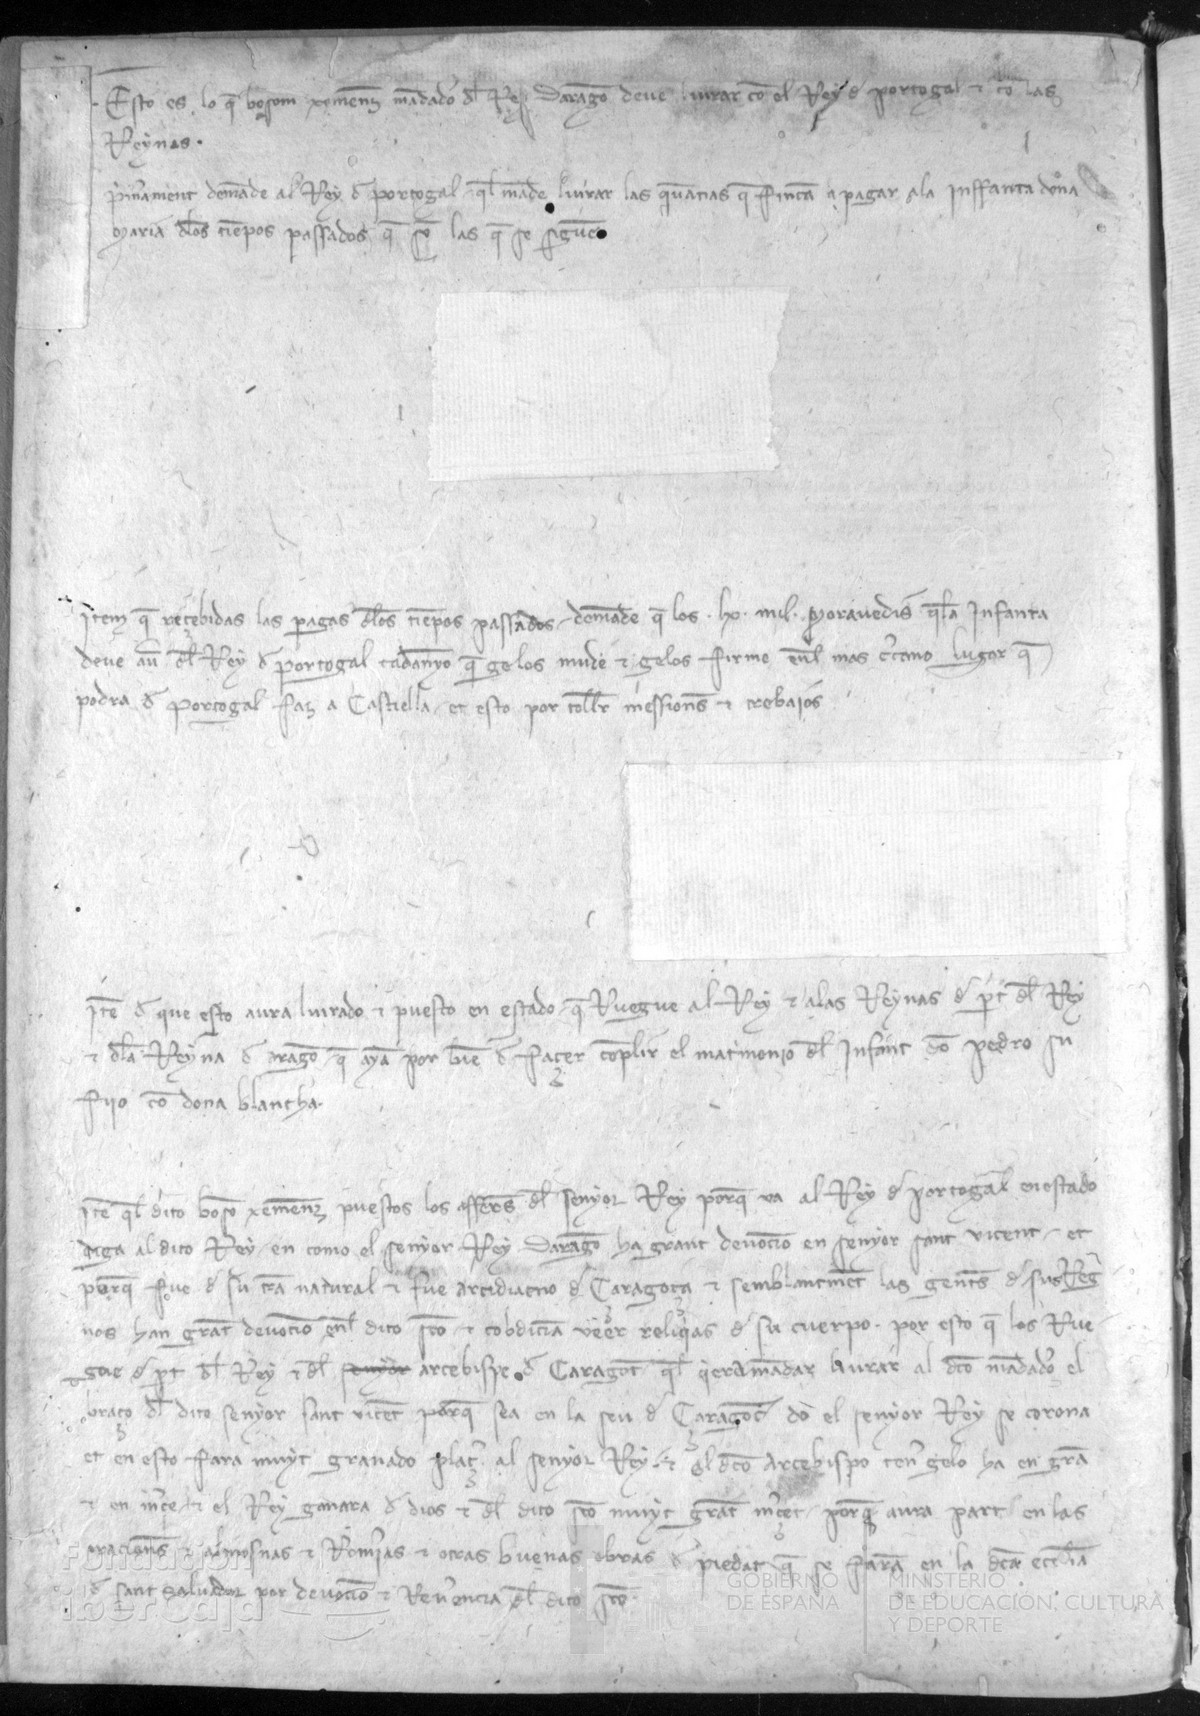 Esto es lo q̄ boson xemenz mãdado dl̄ Rey Daragõ deue liurar cõ el Rey đ portogal ⁊ cõ las
Reynas.
p̃m̃ament demãde al Rey đ portogal ql̄ mãde liurar las quãtias q̄ fincã a pagar ala Inffanta dona
Maria dlos tiẽpos passados q̄ sõ las q̄ se siguẽ
Item q̄ recebidas las pagas dlos tiẽpos passados demãde q̄ los . mil. Morauedis qla Infanta
deue au dl̄ Rey đ portogal cadanyo q̄ gelos mude ⁊ gelos firme enl mas c̃cano lugar q̄
podra đ portogal faz a Castiella et esto por toll̃r messiones ⁊ trebaios
Itẽ đ que esto aura liurado ⁊ puesto en estado q̄ Ruegue al Rey ⁊ alas Reynas đ p̱t dl̄ Rey
⁊ dla Reyna đ aragõ q̄ ayã por biẽ đ facer cõplir el mat̃monio dl̄ Infant dõ pedro su
fijo cõ dona blancha.
Itẽ ql̄ dito bosõ xemenz puestos los afferes dl̄ senyor Rey porq̄ va al Rey đ portogal en estado
diga al dito Rey en como el senyor Rey Daragõ ha grant deuociõ en senyor sant vicent et
porq̄ fue đ su tr̃a natural ⁊ fue arcidiacno đ Caragoça ⁊ semblantmẽt las gentes đ sus Reg̃
nos han grãt deuociõ enl dito sc̃o ⁊ cobdiciã veer reliq̃as đ su cuerpo. por esto q̄ los Rue
gue đ p̱t dl̄ Rey ⁊ dl̄ senyor arcebispe đ Caragoça ql̄ q̃era mãdar liurar al dc̃o mãdado el
braço dl̄ dito senyor sant vicẽt porq̄ sea en la seu đ Caragoça do el senyor Rey se corona
et en esto fara muyt granado plaç̃ al senyor Rey ⁊ el dc̃o Arcebispo ten̄ gelo ha en grã
⁊ en m̃ce ⁊ el Rey ganara đ dios ⁊ dl̄ dito sc̃o muyt grãt m̃cet porq̄ aura part en las
oraciões ⁊ almosnas ⁊ Romias ⁊ otras buenas obras đ piedat q̄ se farã en la dc̃a ecc̃lia
đ sant saluador por deuociõ ⁊ Reu̇encia dl̄ dito sc̃o.
Fundación
iberCaja
GOBIERNO
DE ESPAÑA
MINISTERIO
DE EDUCACIÓN, CULTURA
Y DEPORTE